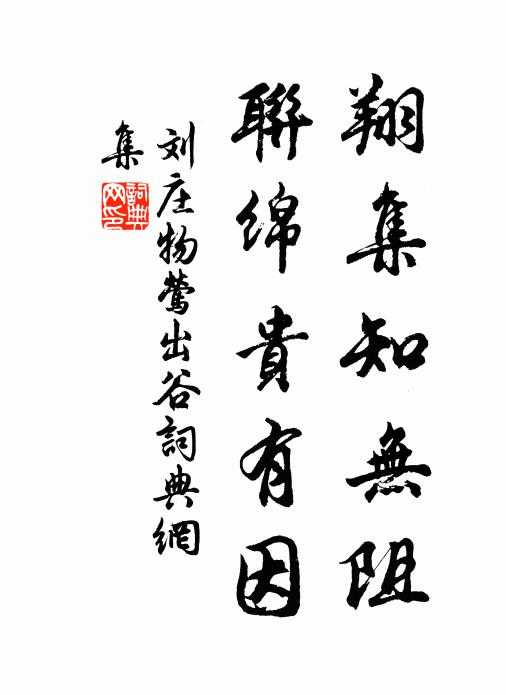 翔集知無阻
聯綿貴有因
刘庄物鶯出谷詞典網
集
詞典
网印